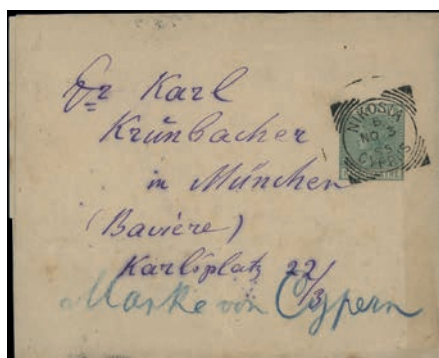 Dr Karl
Krumbacher
in München
(Bavière)
Karlsplatz 22/3
Marke von Cypern
NIKOSIA
NO 3
CYPRUS